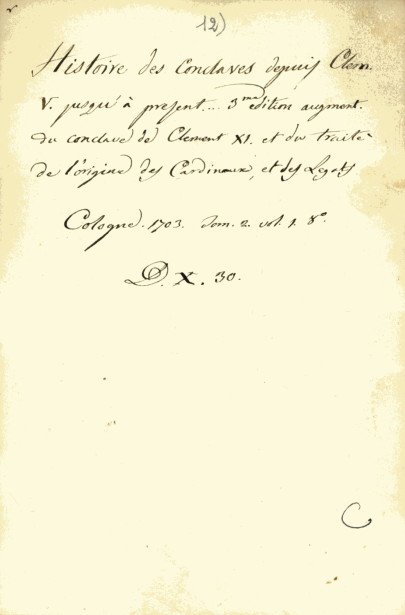 12)
Histoire des Conclaves depuis Clem.
V. jusqu'à present... 3me edition augment.
du conclave de Clement XI. et du traité
de l'origine des Cardinaux, et des Legats
Cologne. 1703. tom. 2. vol. 1. 8º.
D. X. 30.
C